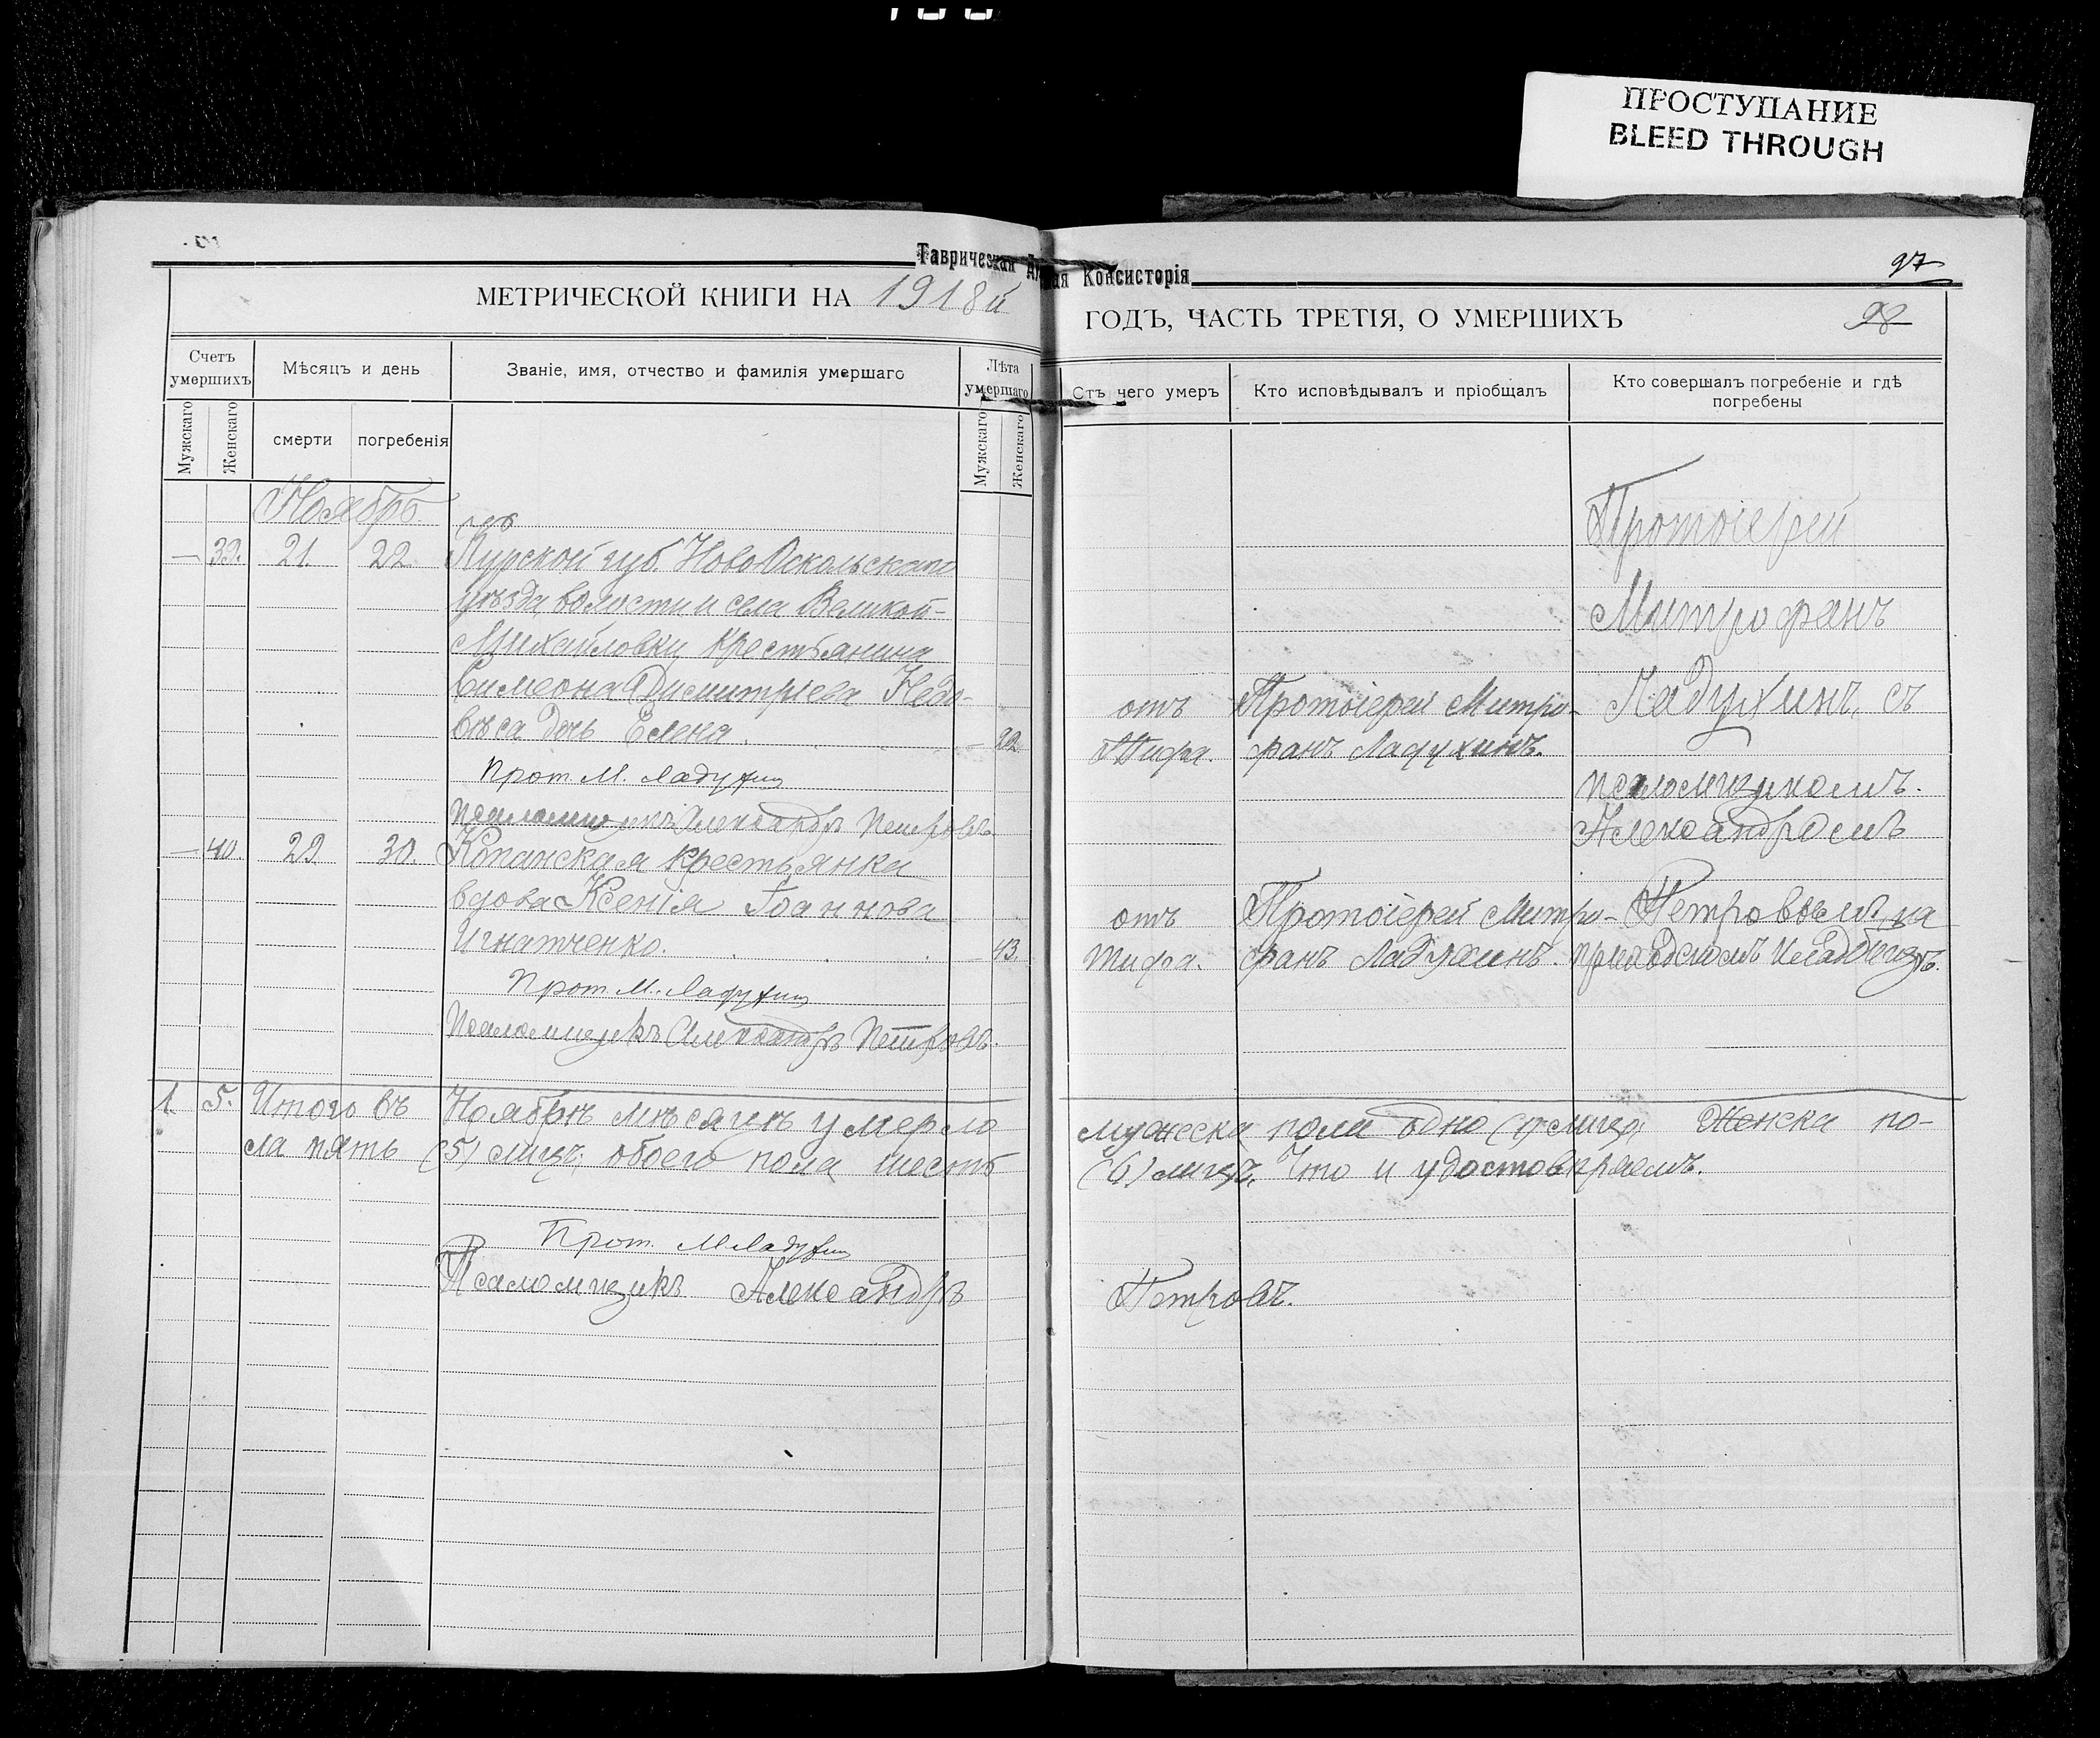 ПРОСТУПАНИЕ
BLEED THROUGH
Таврическая Консисторія
97
МЕТРИЧЕСКОЙ КНИГИ НА 1918й
ГОДЪ, ЧАСТЬ ТРЕТІЯ, О УМЕРШИХЪ
98
Счетъ умершихъ
Мѣсяцъ и день
Званіе, имя, отчество и фамилія умершаго
Лѣта умершаго
Отъ чего умеръ
Кто исповѣдывалъ и пріобщалъ
Кто совершалъ погребеніе и гдѣ погребены
Мужскаго
Женскаго
смерти
погребенія
Мужскаго
Женскаго
Ноябрь
— 39. 21. 22. Курской губ. Ново Оскольскаго
уѣзда, волости и села Великой-
Михайловки крестьянина
Симеона Димитріева Недо-
вѣса дочь Елена. — 22.
Прот. М. Ладухин
Псаломщикъ Александръ Петровъ.
отъ
Тифа.
Протоіерей Митро-
фанъ Ладухинъ.
Протоіерей
Митрофанъ
Ладухинъ, съ
псаломщикомъ.
Александромъ
Петровымъ, на
приходскомъ кладбищѣ.
— 40. 29. 30. Копанская крестьянка
вдова Ксенія Іоаннова
Игнатченко. — 43.
Прот. М. Ладухин
Псаломщикъ Александръ Петровъ.
отъ
тифа.
Протоіерей Митро-
фанъ Ладухинъ.
1. 5. Итого въ Ноябрѣ мѣсяцѣ умерло мужеска пола одно (1) лицо, Женска по-
ла пять (5) лицъ, обоего пола шесть (6) лицъ. Что и удостовѣряемъ.
Прот. М Ладухин
Псаломщикъ Александръ Петровъ.